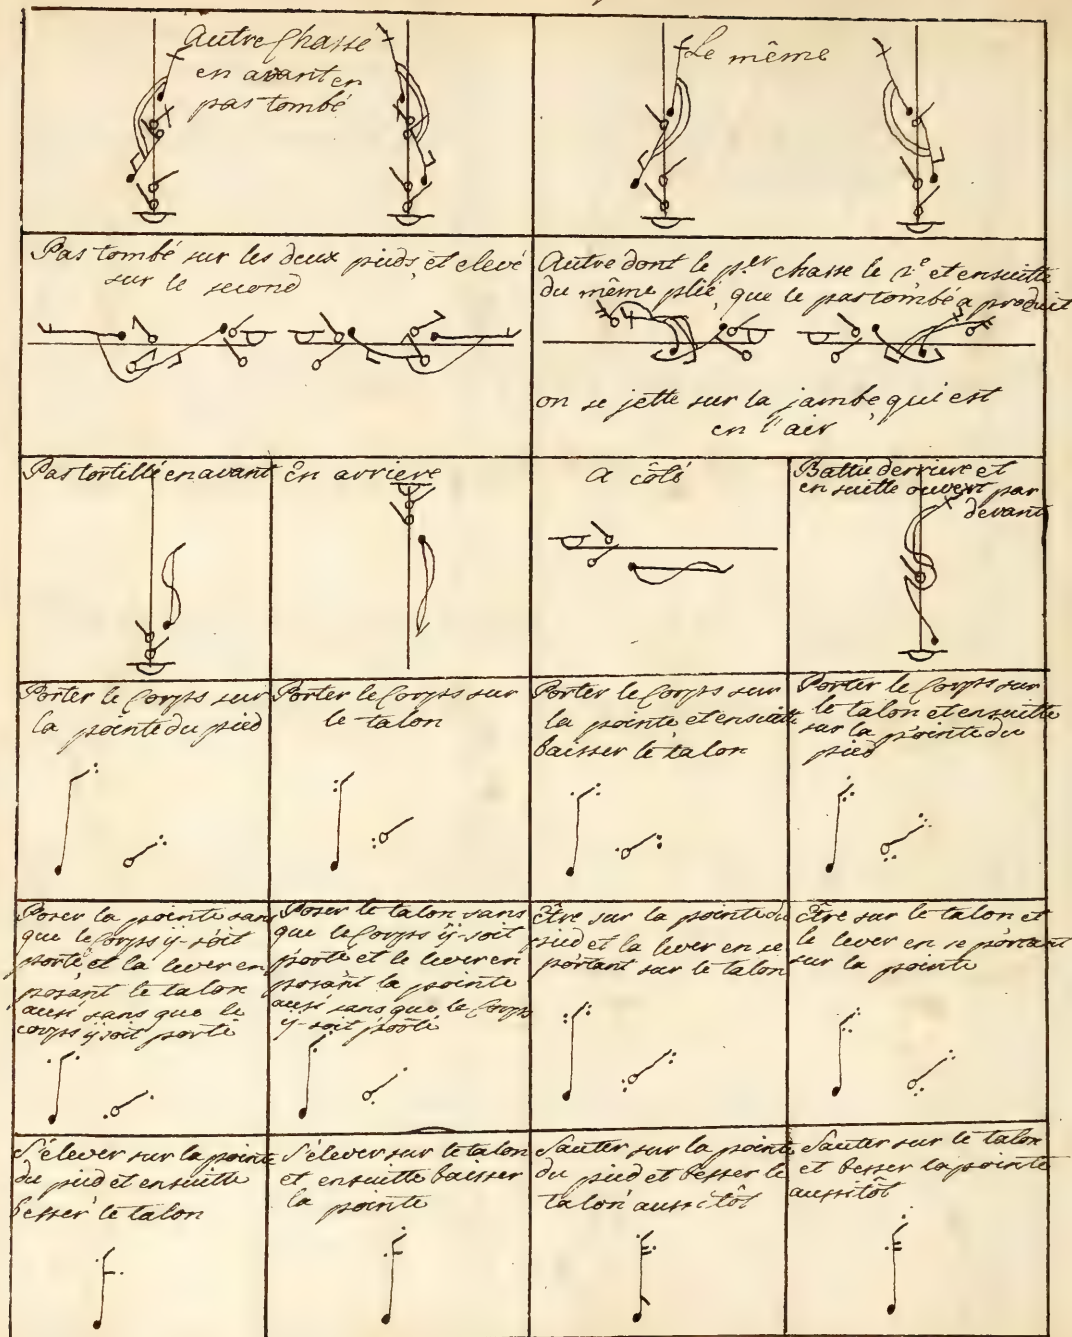 Autre Chasse
en avant en
pas tombé
Le même
Pas tombé sur les deux pieds, et elevé
sur le second
Autre dont le p.er chasse le 2.e et ensuitte
du même plié, que le pas tombé a produit
on se jette sur la jambe qui est
en l'air
Pas tortillé en avant
En arriere
A côté
Battu derriere et
ensuitte ouvert par
devant
Porter le Corps sur
la pointe du pied
Porter le Corps sur
le talon
Porter le Corps sur
la pointe et ensuitte
baisser le talon
Porter le Corps sur
le talon et ensuitte
sur la pointe du
pied
Poser la pointe sans
que le Corps ÿ soit
porté et la lever en
posant le talon
ausi sans que le
corps ÿ soit porté
Poser le talon sans
que le Corps ÿ soit
porté et le lever en
posant la pointe
ausi sans que le Corps
ÿ soit porté
Être sur la pointe du
pied et la lever en se
portant sur le talon
Être sur le talon et
le lever en se portant
sur la pointe
S'élever sur la pointe
du pied et ensuitte
besser le talon
S'élever sur le talon
et ensuitte baisser
la pointe
Sauter sur la pointe
du pied et besser le
talon aussitôt
Sauter sur le talon
et besser la pointe
aussitôt